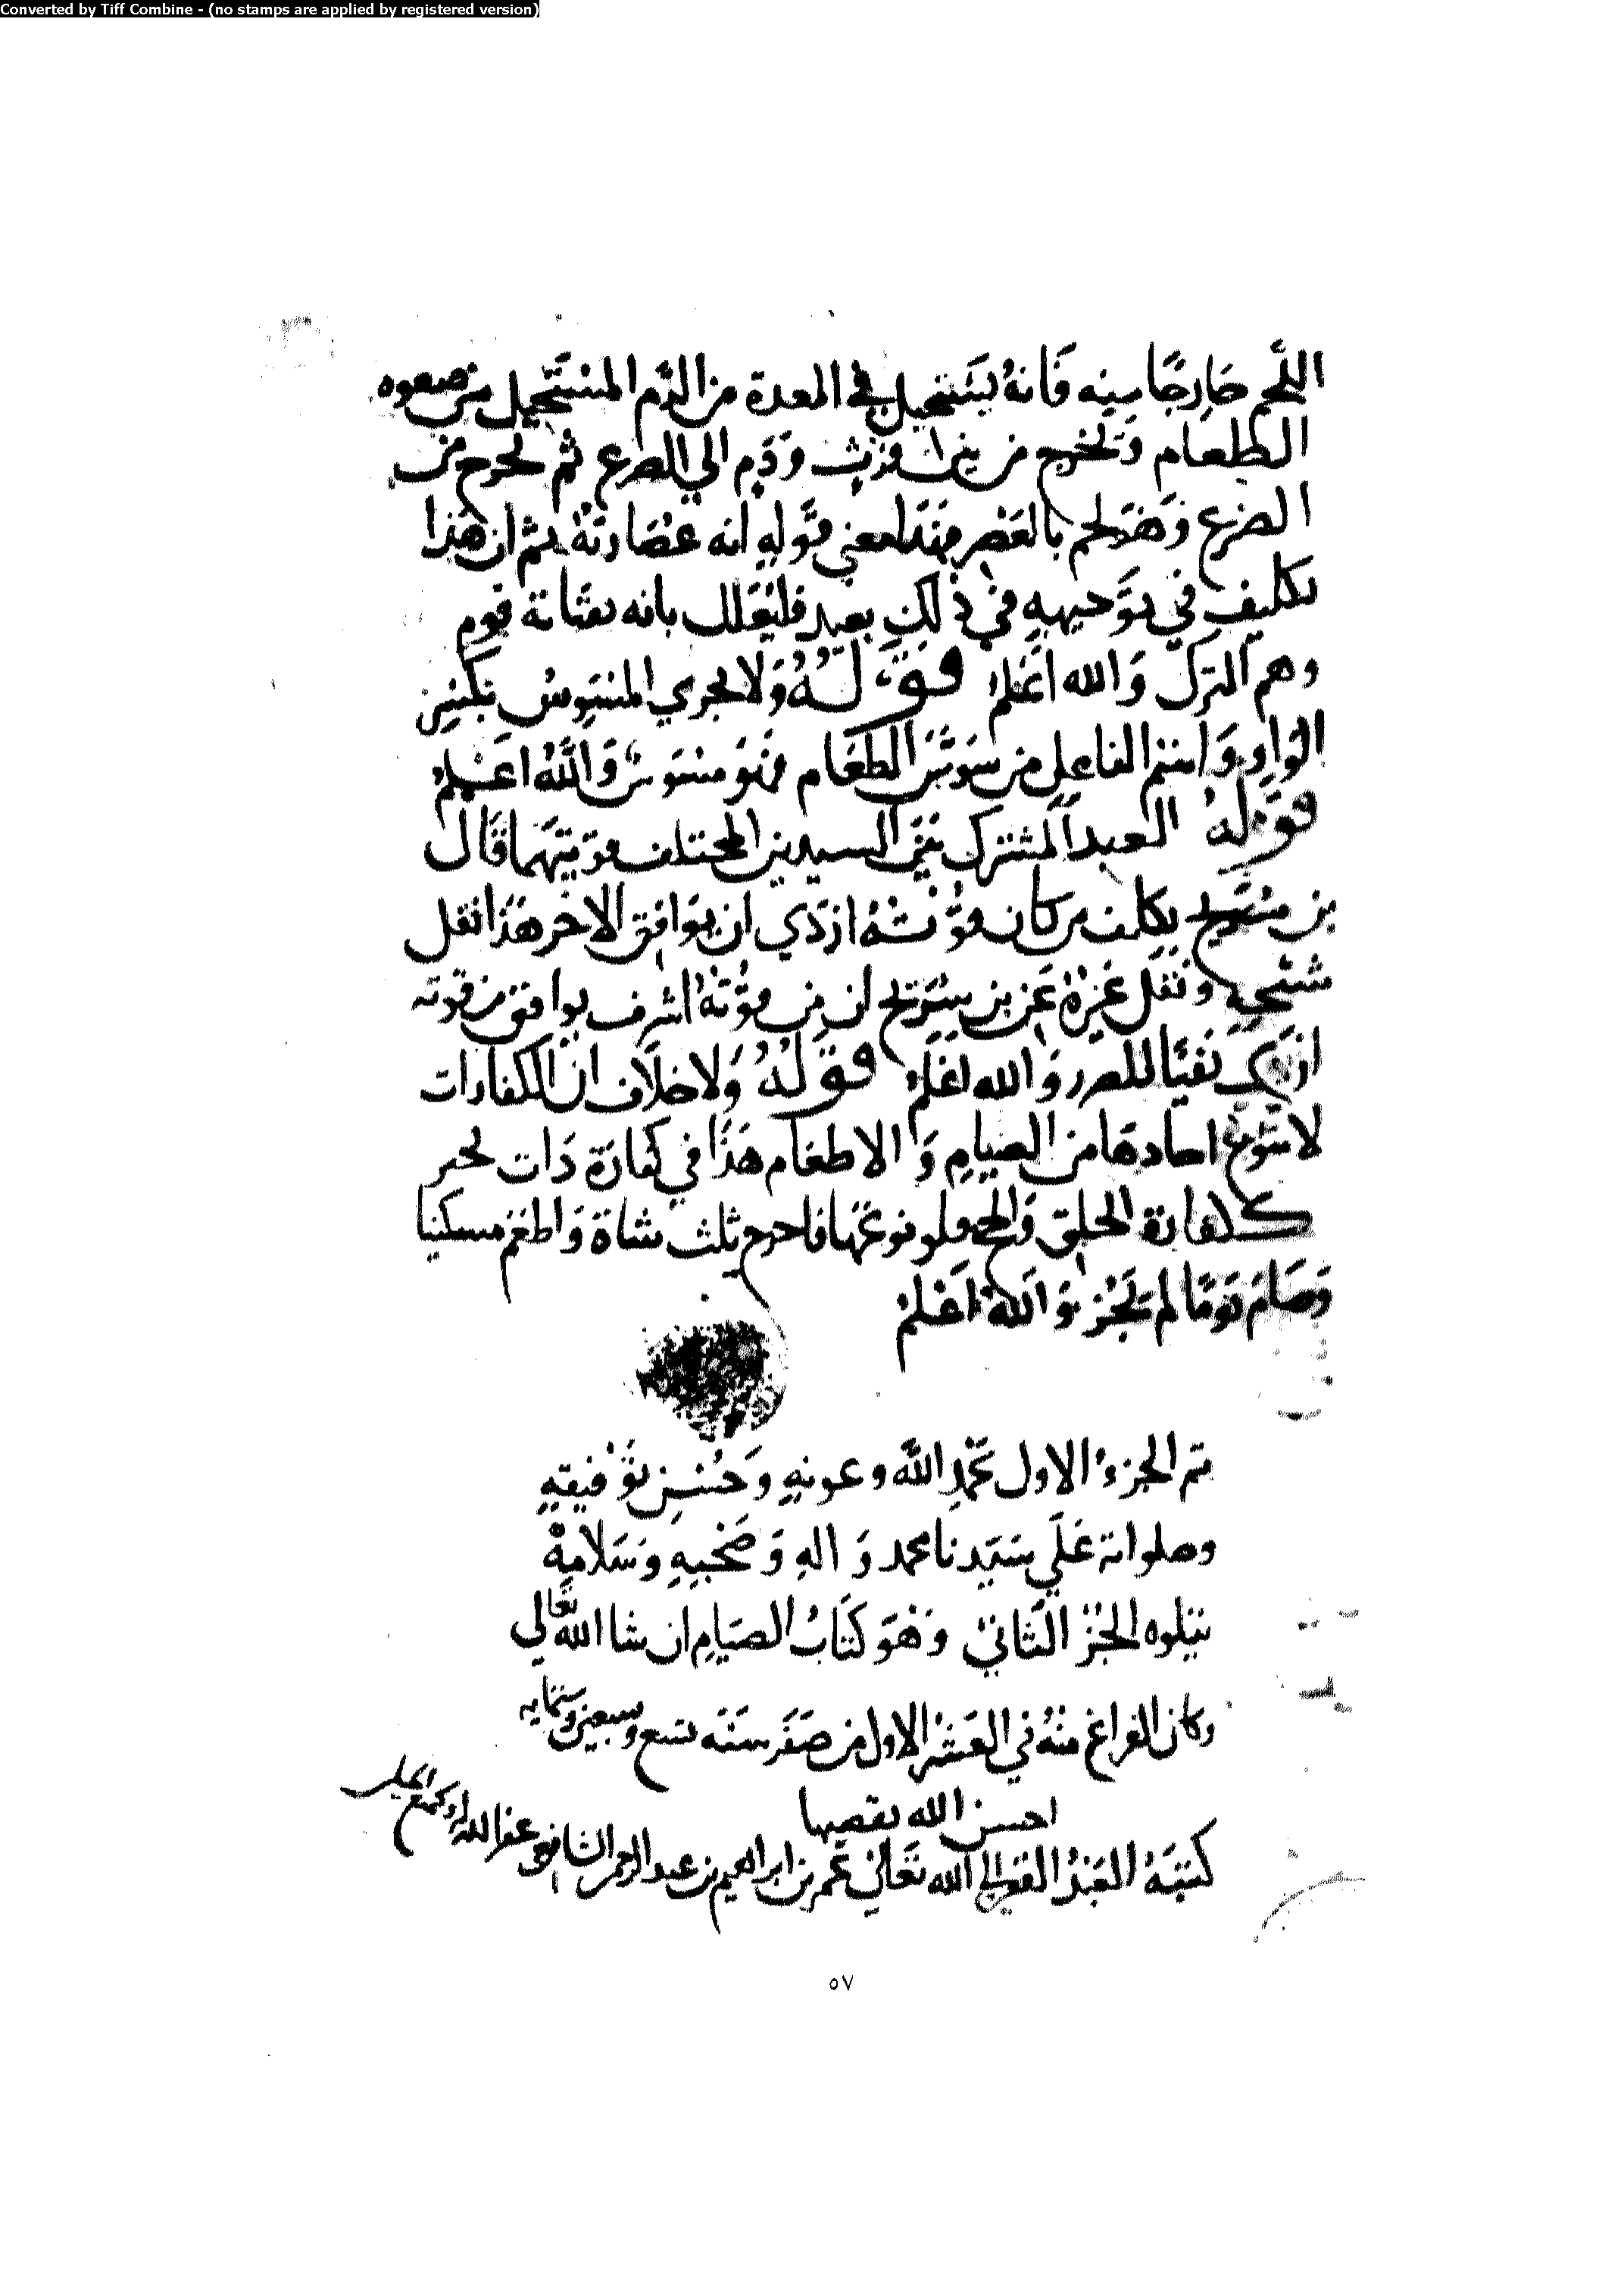 Converted by Tiff Combine - (no stamps are applied by registered version)
اللحم خارجًا منه فَانهُ يَستَحيل في المعدة من الدَّم المستَحيل من صفوه
الطعام وَتخرج من بين فرث وَدَم الي الضرع ثم يخرج من
الضرع وَهوَ لحم بالعَصر فهَذا معني قَوله انه عصَارتهُ ثم ان هَذا
تكليف في توَجيهه في ذلك بعيد فليُعَلل بانه يقتاته قوم
وهم الترك وَالله اعلم قوله وَلا يجزي المسَوس بكَسر
الوَاو وَاسم الفاعل من سَوَّسَ الطعَام فهوَ مسَوس وَاللهُ اعلم
قوله العبد المشترك بَين السيدين المختلف قوتيهما قَال
بن سريج يكلف من كان قوتُهُ اردي ان يوَافق الاخر هَذا نقل
شيخي وَنقل غيرهُ عَن بن سُرَيج ان من قوتهُ اشرف يوافق من قوته
اردي نفيًا للضرر وَالله اعلم قوله وَلا خلاف ان الكفارات
لا تتنوع احادها من الصيام وَالاطعَام هَذا في كفارَة ذات تخير
ككفارة الحلق وَالحج فلو نوعها فاخرج ثلث شاة وَاطعَم مسكينا
وَصَامَ يَومًا لم يَجُز وَاللهُ اعلم
تم الجزء الاول بحمدِ الله وعونهِ وَحُسنِ توفيقهِ
وصلواته عَلَي سَيّدنا محمد وَالهِ وَصَحبهِ وَسَلامه
يتلوه الجُز الثَاني وَهوَ كتَابُ الصيَام ان شا الله تعَالي
وكان الفراغ منهُ في العَشر الاول من صَفَر سَنَه تسع وسبعين وستمايه
احسن الله تقضيها
كتبَهُ العَبدُ الفقير الي الله تَعَالي عمر بن ابراهيم بن عبد الرحمن الشافعي عفا الله
٥٧